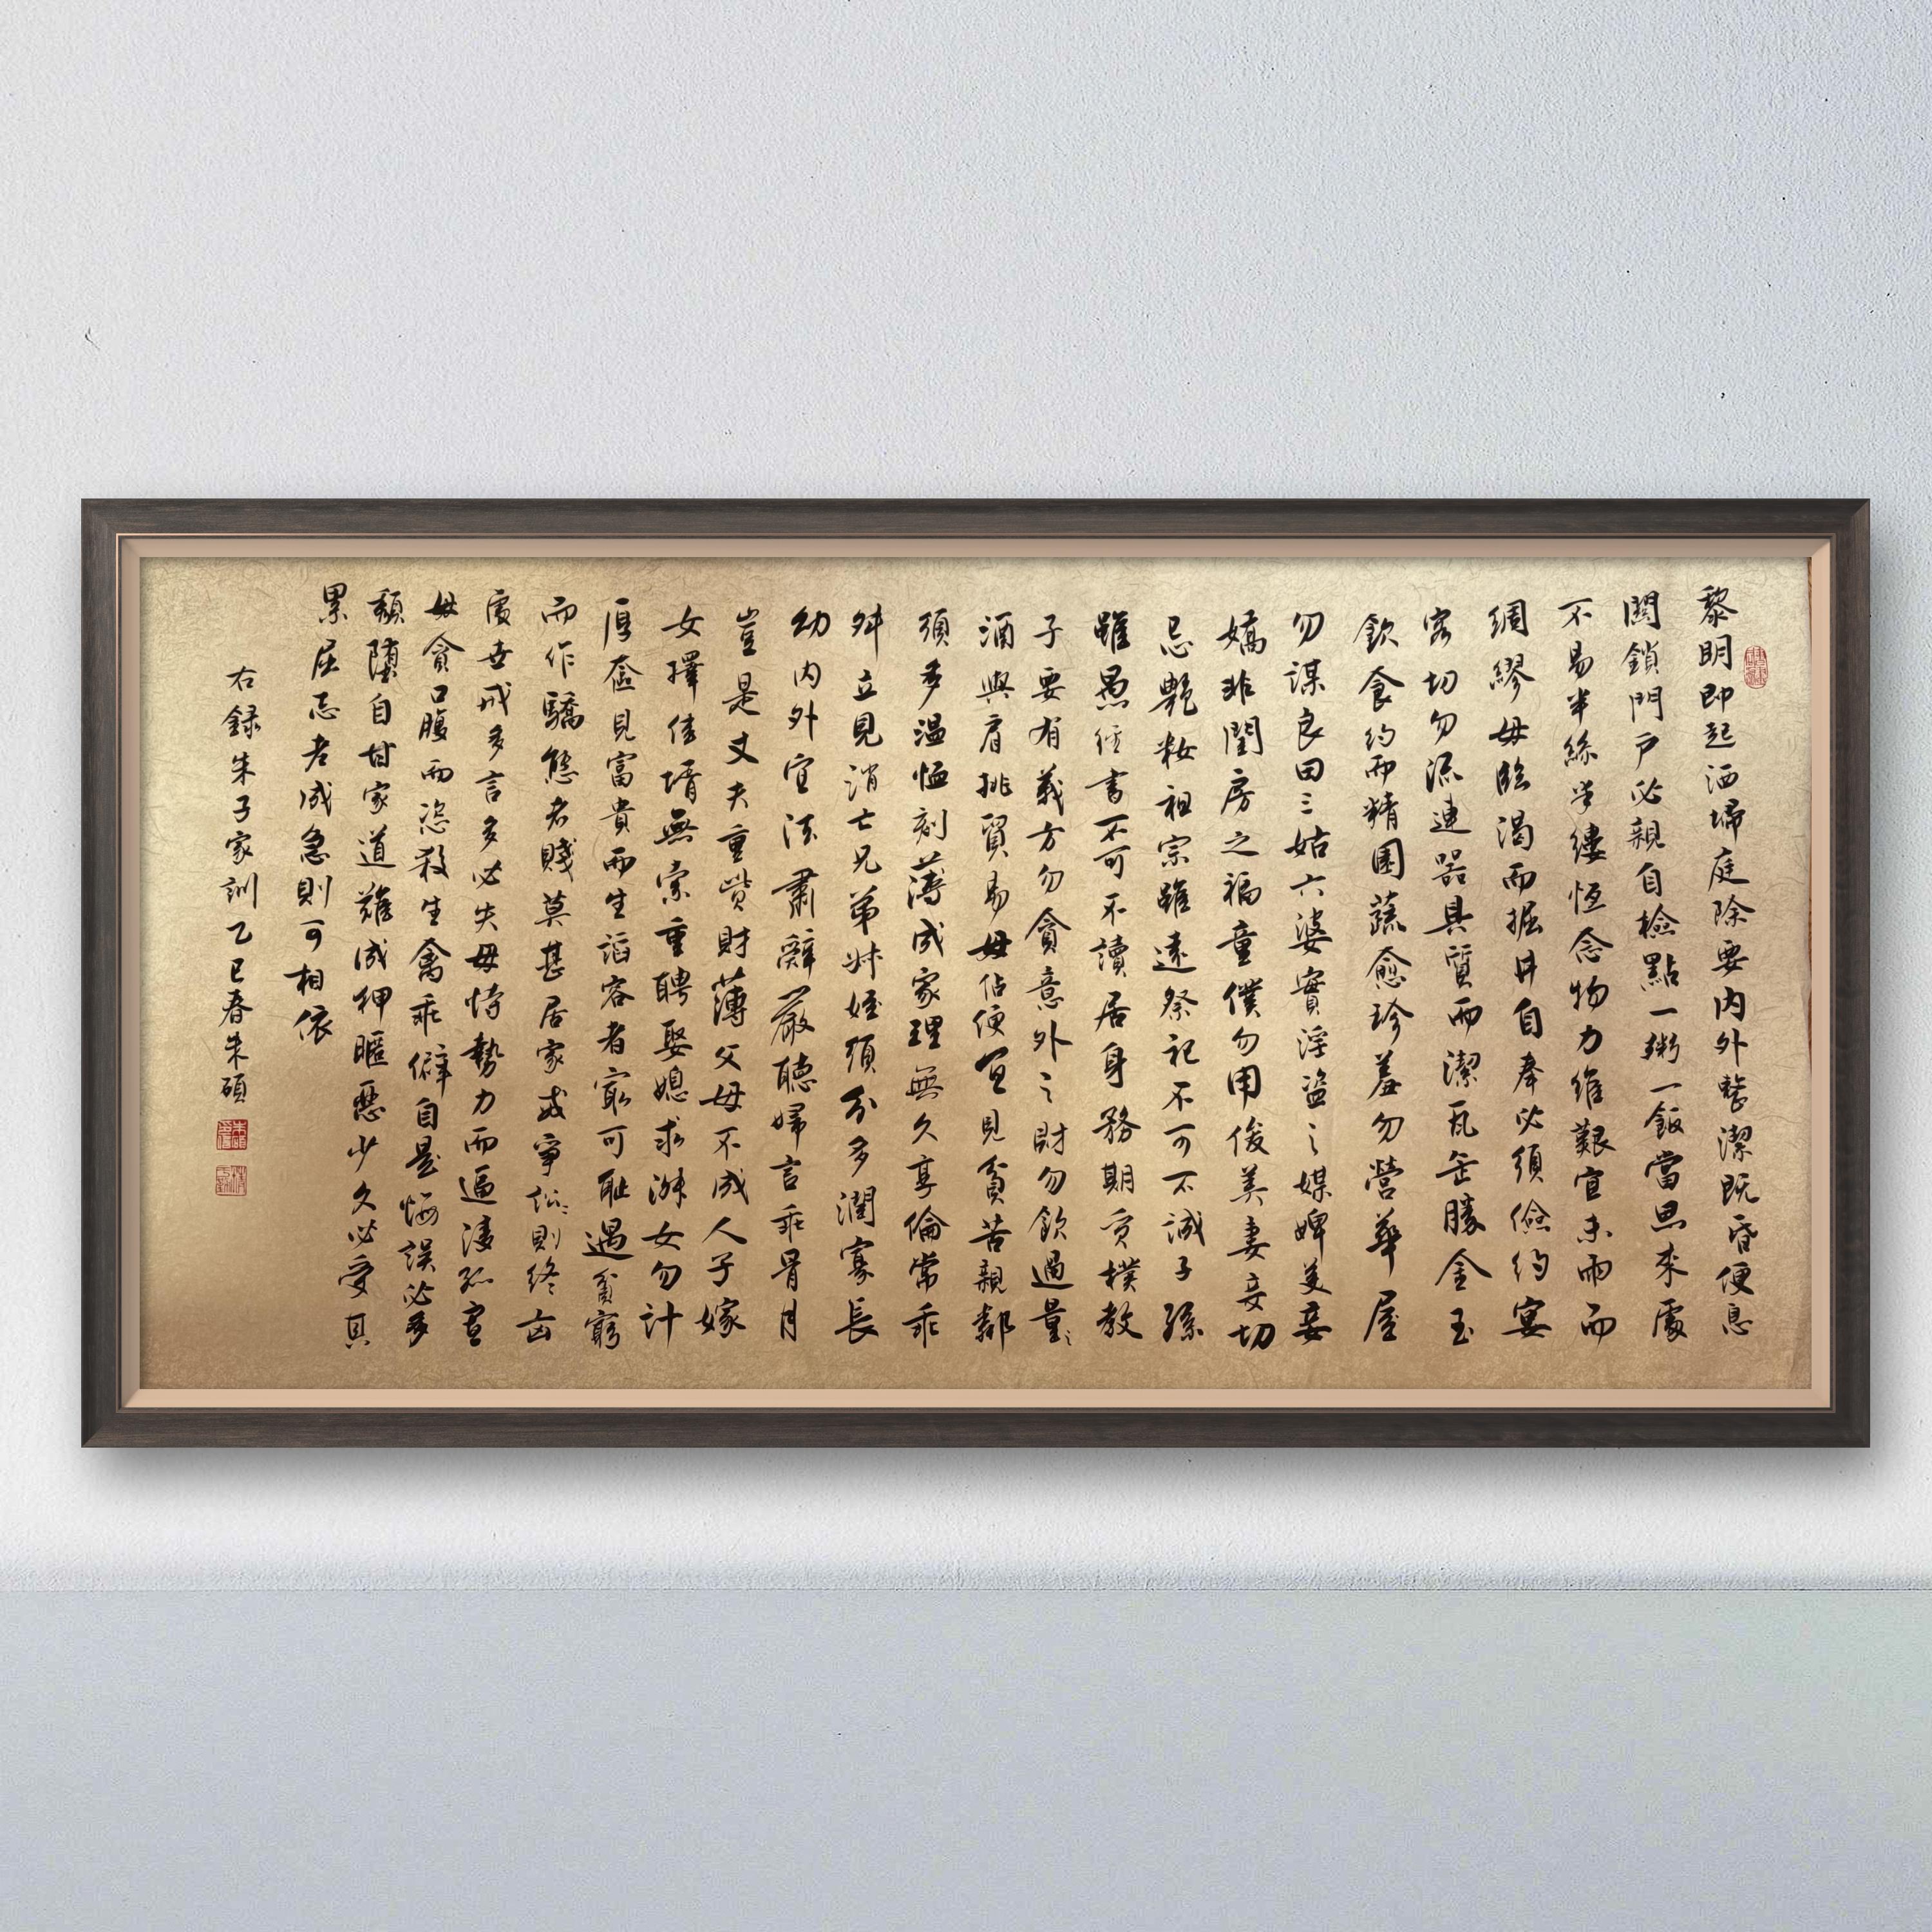 黎明即起洒埽庭除要内外整潔既昏便息
關鎖門户必親自檢點一粥一飯當思來處
不易半絲半縷恆念物力維艱宜未雨而
綢繆毋臨渴而掘井自奉必須儉約宴
客切勿流連器具質而潔瓦缶勝金玉
飲食約而精園蔬愈珍羞勿營華屋
勿謀良田三姑六婆實淫盗之媒婢美妾
嬌非閨房之福童僕勿用俊美妻妾切
忌艷妝祖宗雖遠祭祀不可不誠子孫
雖愚經書不可不讀居身務期質樸教
子要有義方勿貪意外之財勿飲過量之
酒與肩挑貿易毋佔便宜見貧苦親鄰
須多温恤刻薄成家理無久享倫常乖
舛立見消亡兄弟叔姪須分多潤寡長
幼内外宜法肅辭嚴聽婦言乖骨月
豈是丈夫重貲財薄父母不成人子嫁
女擇佳壻無索重聘娶媳求淑女勿計
厚奩見富貴而生諂容者最可恥遇貧窮
而作驕態者賤莫甚居家戒爭訟訟則終凶
處世戒多言多必失毋恃勢力而逼凌孤寡
毋貪口腹而恣殺生禽乖僻自是悔誤必多
頹墮自甘家道難成狎暱惡少久必受其
累屈志老成急則可相依
右録朱子家訓乙巳春朱碩